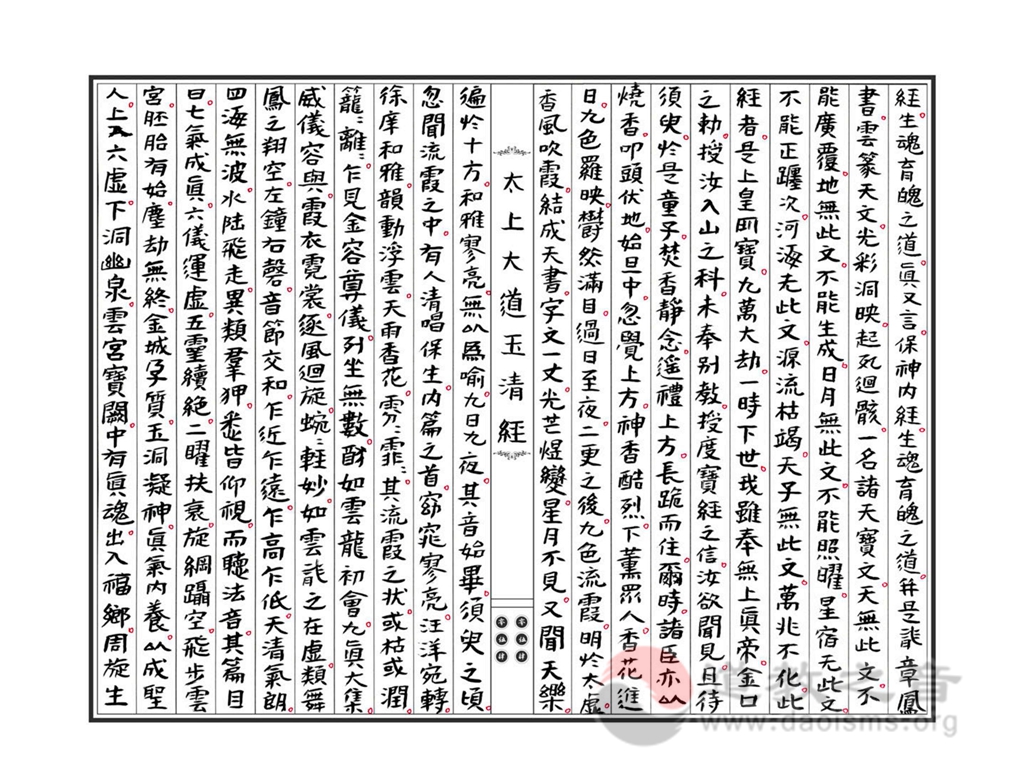 經生魂育魄之道眞又言保神内經生魂育魄之道并是龍章鳳
書雲篆天文光彩洞映起死迴骸一名諸天寶文天無此文不
能廣覆地無此文不能生成日月無此文不能照曜星宿无此文
不能正躔次河海无此文源流枯竭天子無此文萬兆不化此
經者是上皇明寶九萬大劫一時下世我雖奉無上眞帝金口
之勅授汝入山之科未奉别教授度寶經之信汝欲聞見且待
須臾於是童子焚香靜念遥禮上方長跪而住爾時諸臣亦以
燒香叩頭伏地始旦中忽覺上方神香酷烈下薰眾人香花進
日九色羅映欝然滿目過日至夜二更之後九色流霞明於太虛
香風吹霞結成天書字文一丈光芒煜爕星月不見又聞天樂
太上大道玉清經
零伍
零伍肆
遍於十方和雅寥亮無以爲喻九日九夜其音始畢須臾之頃
忽聞流霞之中有人清唱保生内篇之首窈窕寥亮汪洋宛轉
徐庠和雅韻動浮雲天雨香花雰雰霏霏其流霞之狀或枯或潤
籠籠離離乍見金容尊儀列坐無數酧如雲龍初會九眞大集
威儀容與霞衣霓裳逐風迴旋蜿蜿輕妙如雲龍之在虛類舞
鳳之翔空左鐘右磬音節交和乍近乍遠乍高乍低天清氣朗
四海無波水陸飛走異類羣狎悉皆仰視而聽法音其篇目
曰七氣成眞六儀運虛五靈續絶二曜扶衰旋綱躡空飛步雲
宮胚胎有始塵劫無終金城孕質玉洞凝神眞氣内養以成聖
人上入六虛下洞幽泉雲宮寶闕中有眞魂出入福鄉周旋生
道教之音
www.daoisms.org